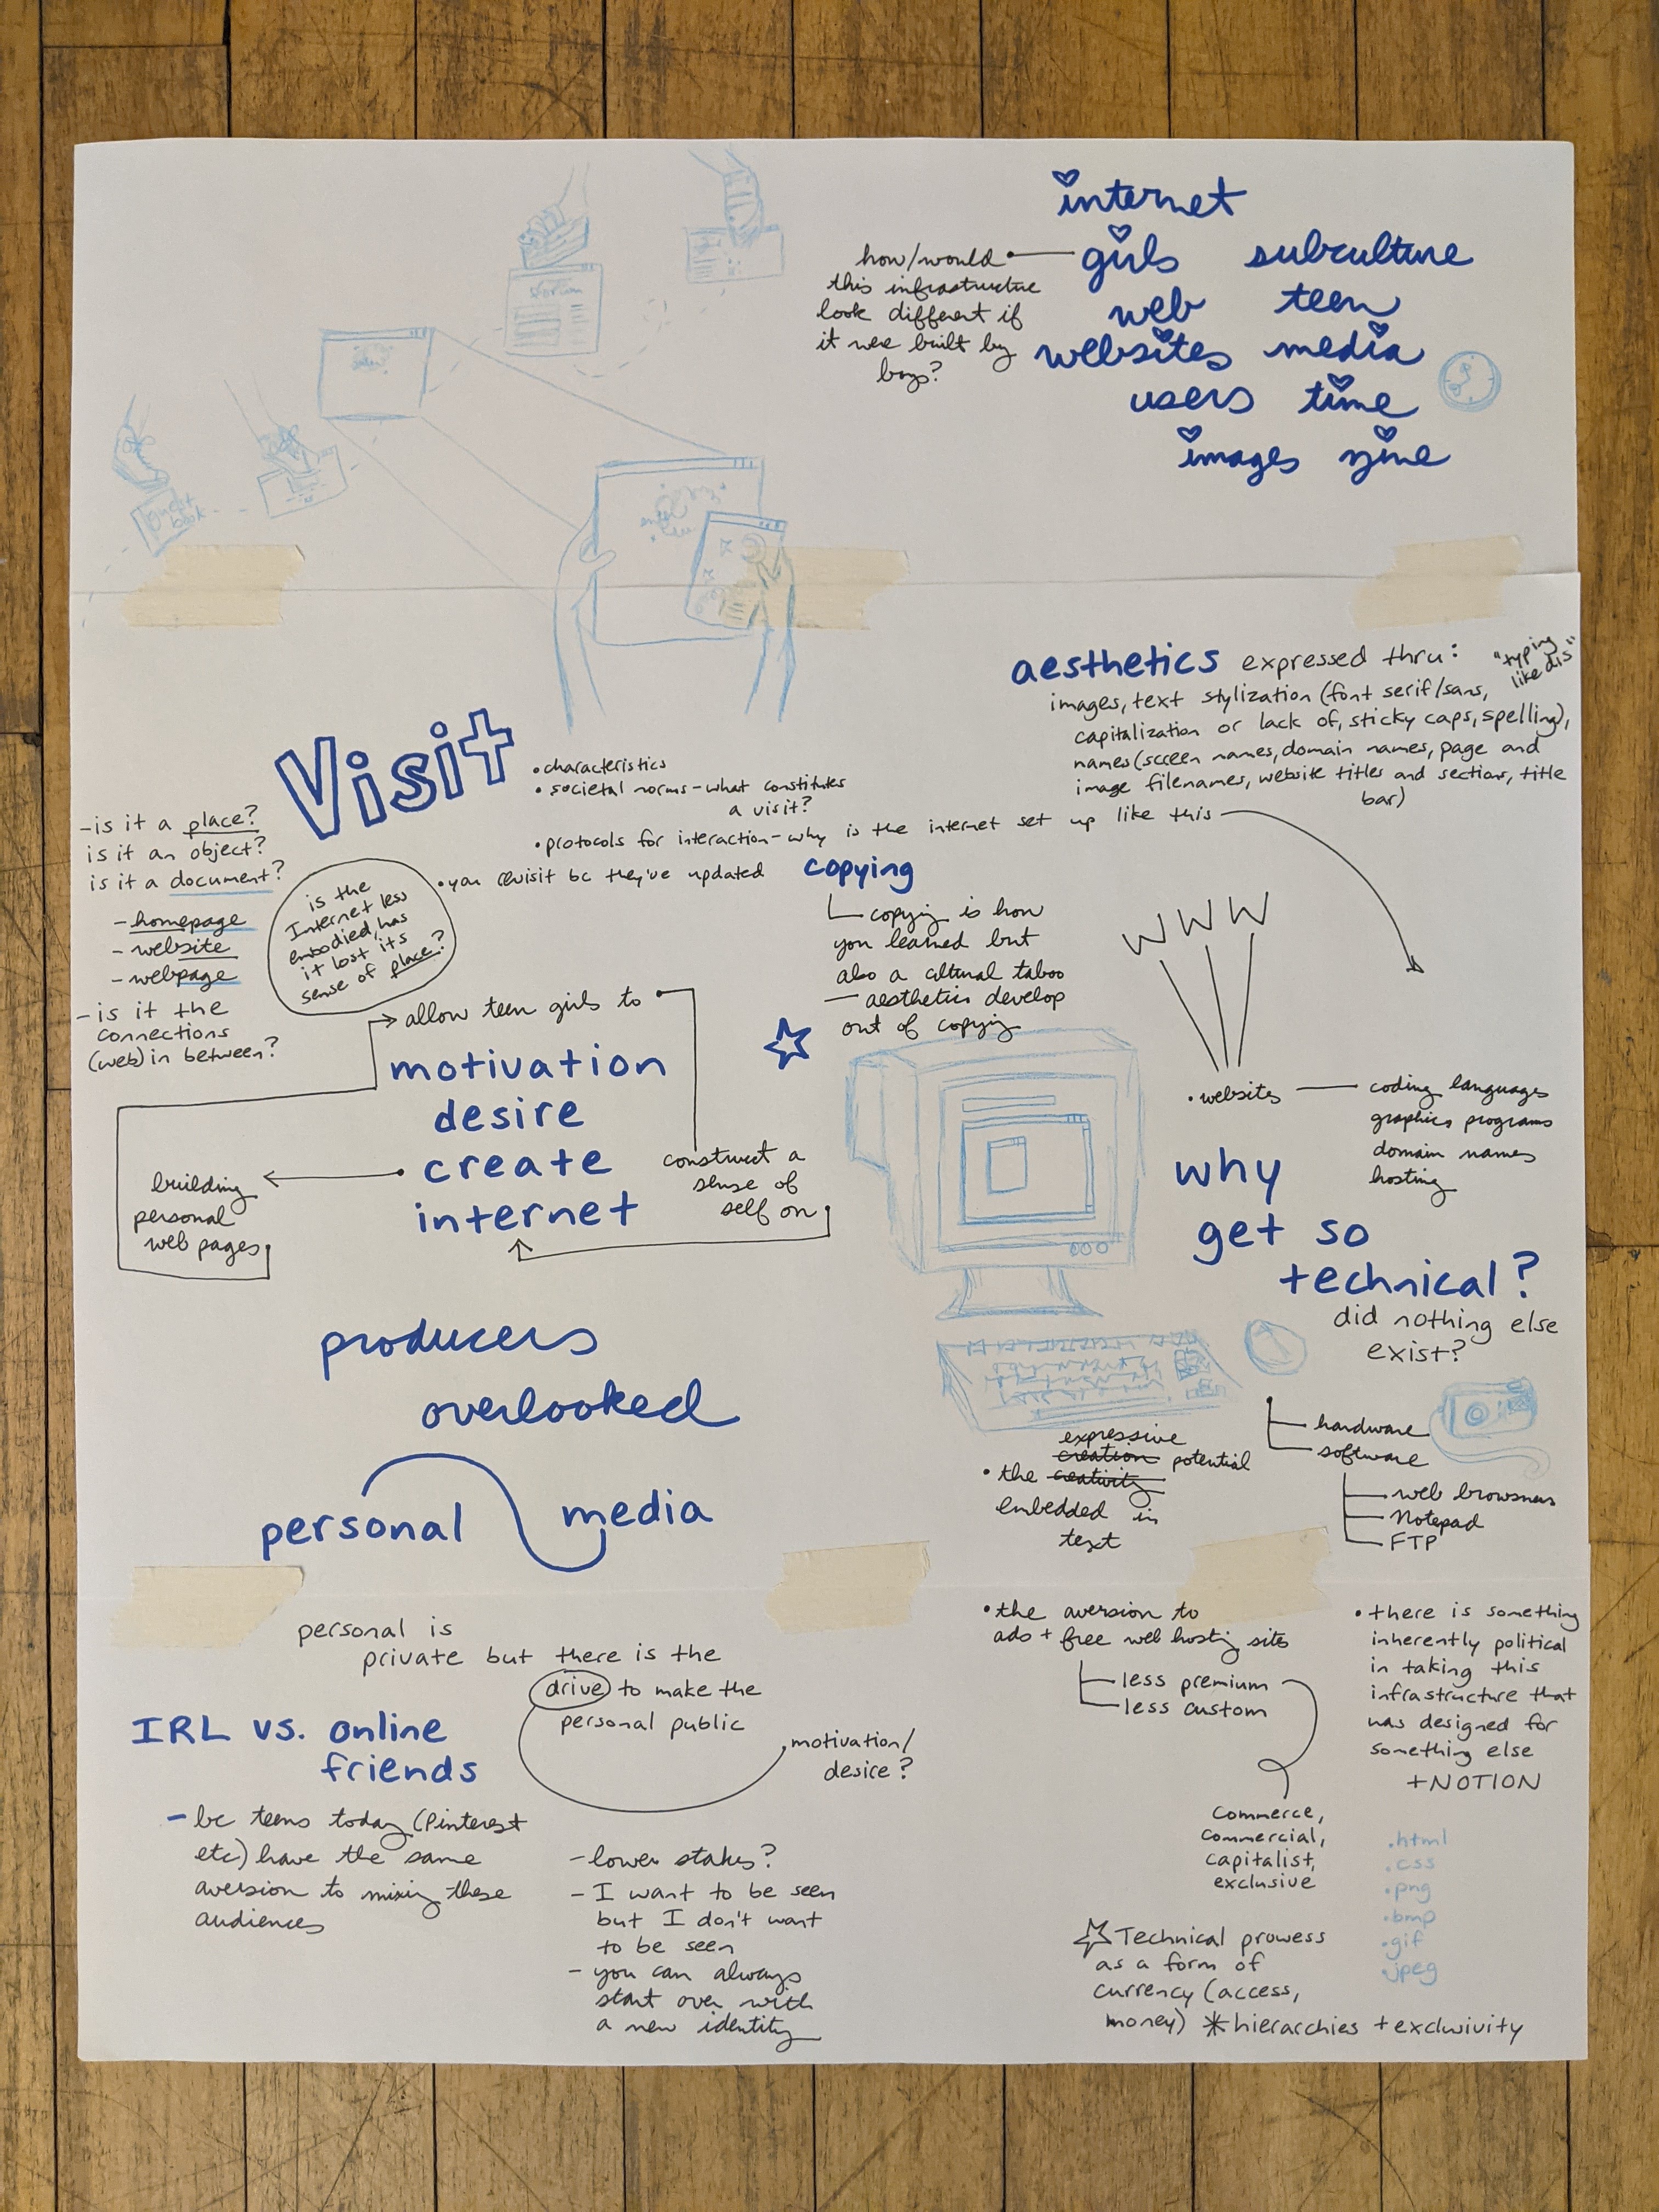 internet
girls subculture
web teen
websites media
users time
images zine
how/would
this infrastructure
look different if
it were built by
boys?
forum
guest
book
enter
aesthetics expressed thru:
"typing
like dis"
images, text stylization (font serif/sans,
capitalization or lack of, sticky caps, spelling),
names (screen names, domain names, page and
image filenames, website titles and sections, title
bar)
Visit
• characteristics
• societal norms - what constitutes
a visit?
• protocols for interaction - why is the internet set up like this
• you revisit bc they've updated
- is it a place?
is it an object?
is it a document?
- homepage
- website
- webpage
- is it the
connections
(web) in between?
is the
Internet less
embodied, has
it lost its
sense of place?
copying
copying is how
you learned but
also a cultural taboo
— aesthetics develop
out of copying
W W W
• websites
coding languages
graphics programs
domain names
hosting
allow teen girls to
motivation
desire
create
internet
construct a
sense of
self on
building
personal
web pages
why
get so
technical?
did nothing else
exist?
hardware
software
web browsers
Notepad
FTP
producers
overlooked
personal media
expressive
creation potential
• the creativity
embedded in
text
personal is
private but there is the
drive to make the
personal public
motivation/
desire?
IRL vs. online
friends
- bc teens today (Pinterest
etc) have the same
aversion to mixing these
audiences
- lower stakes?
- I want to be seen
but I don't want
to be seen
- you can always
start over with
a new identity
• the aversion to
ads + free web hosting sites
less premium
less custom
commerce,
commercial,
capitalist,
exclusive
• there is something
inherently political
in taking this
infrastructure that
was designed for
something else
+NOTION
.html
.css
.png
.bmp
.gif
.jpeg
☆ Technical prowess
as a form of
currency (access,
money) * hierarchies + exclusivity